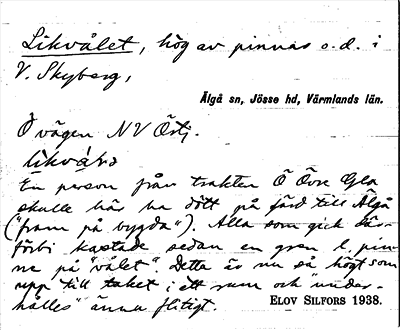 Likvålet, hög av pinnas o.d. i
V. Skyberg,
Älgå sn, Jösse hd, Värmlands län.
Ö vägen NV Östj.
En person från trakten Ö Övre Gla
skulle här ha dött på färd till Älgå
("fram på bygda"). Alla som gick där-
förbi kastade sedan en gren l. pin-
ne på "vålet". Detta är nu så högt som
upp till taket i ett rum och "under-
hålles" ännu flitigt.
ELOV SILFORS 1938.